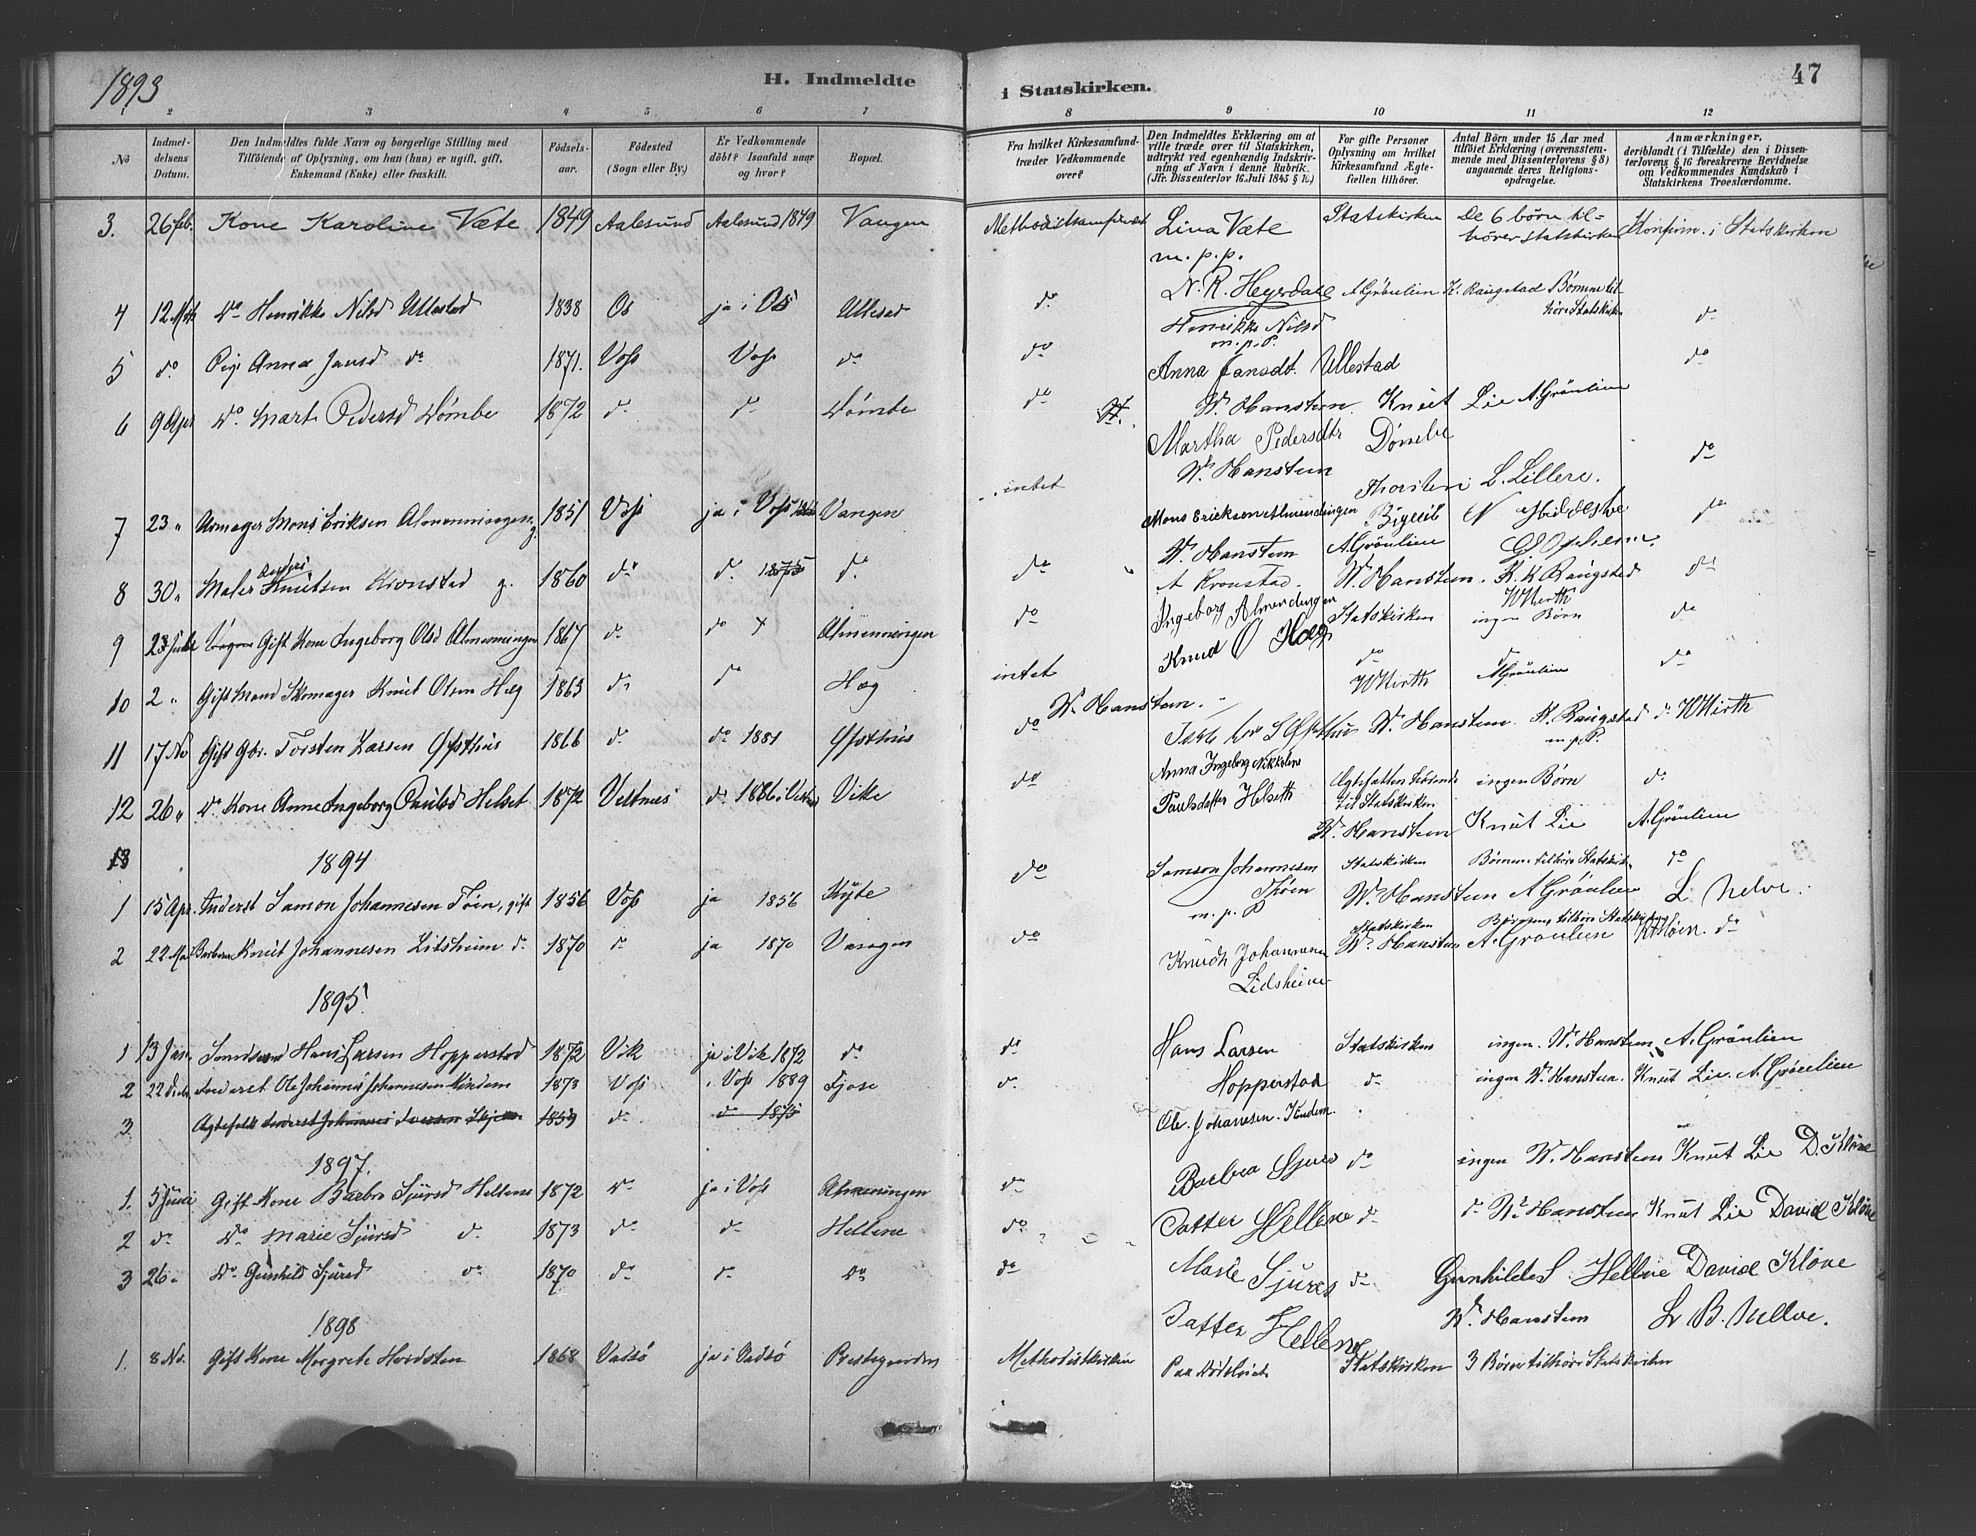 1893
H. Indmeldte i Statskirken.
47
1 2 3 4 5 6 7 8 9 10 11 12
No
Indmeldelsens Datum.
Den Indmeldtes fulde Navn og borgerlige Stilling med Tilföiende af Oplysning, om han (hun) er ugift, gift, Enkemand (Enke) eller fraskilt.
Födselsaar.
Födested (Sogn eller By.)
Er Vedkommende döbt? Isaafald naar og hvor?
Bopæl.
Fra hvilket Kirkesamfund træder Vedkommende over?
Den Indmeldtes Erklæring om at ville træde over til Statskirken, udtrykt ved egenhændig Indskrivning af Navn i denne Rubrik. (Jfr. Dissenterlov 16. Juli 1845 § 16.)
For gifte Personer Oplysning om hvilket Kirkesamfund Ægtefællen tilhörer.
Antal Börn under 15 Aar med tilföiet Erklæring (overensstemmende med Dissenterlovens § 8) angaaende deres Religionsopdragelse.
Anmærkninger, deriblandt (i Tilfælde) den i Dissenterlovens § 16 foreskrevne Bevidnelse om Vedkommendes Kundskab i Statskirkens Troeslærdomme.
3. 26 Feb. Kone Karoline Væte 1849 Aalesund Aalesund 1849 Vangen Methodistsamfundet Lina Væte Statskirken De 6 börn tilhörer Statskirken Konfirm. i Statskirken
m. p. p.
N. R. Heyerdahl A Grönlien K. Raugstad Börnene tilhöre Statskirken
4 12 do Henrikke Nilsd Ullestad 1838 Os ja i Os Ullestad do Henrikke Nilsd do
m. p. P.
5 do Pige Anna Jansd do 1871. Voss Voss do do Anna Jansdt. Ullestad do
6 9 Apr do Mart. Pedersd Dömbe 1872 do do Dömbe do W. Hanstein. Knut Lie A. Grönlien
Martha Pedersdtr Dömbe
W. Hanstein do
intet Thorsten L. Lillere.
7 23 " Mons Eriksen Almenningen g. 1851 Voss ja i Voss Vangen Mons Ericksen Almendingen do
W. Hanstein A. Grönlien
8 30 " Maler Knutsen Kronstad g. 1860 do do 1875 do do A Kronstad. W. Hanstein. K. K Raugstad do
WWirth
9 Gift Kone Ingeborg Olsd Almenningen 1867 do do Almenningen do Ingeborg Almendingen Statskirken ingen Börn do
10 2 " Gift Mand Skomager Knut Olsen Hæg 1863 do do Hæg intet Knud O Hæg do do do
WWirth A Grönlien
W. Hanstein.
11 17 No Gift Gbr. Torsten Larsen Gjösthus 1866 do do 1881 Gjösthus do W. Hanstein. K. Raugstad do WWirth
m. p. P.
12 26 " do Kone Anne Ingeborg Paulsd Helset 1872 do Vike do Anna Ingeborg Nikkoline Paulsdatter Helseth Ægtefællen til Statskirken ingen Börn do
W. Hanstein Knut Lie A. Grönlien
13
1894
1 15 Apr. Inderst Samson Johannesen Töen, gift 1856 Voss ja 1856 Kyte do Samson Johannesen Thöen Statskirken Börnene tilhöre Statskirk. do
m. p. P W. Hanstein A Grönlien
2 22 Knut Johannesen Litsheim do 1870 do ja 1870 Vangen do Knudt Johannesen Lidsheim Statskirken Börnene tilhöre Statskirken do
W. Hanstein A. Grönlien
1895
1 13 Jan. Hans Larsen Hopperstad 1872 Vik ja i Vik 1872 do do Hans Larsen Hopperstad Statskirken ingen. W. Hanstein A. Grönlien
2 22 Inderst Ole Johannes Johannesen Kindem 1873 Voss i Voss 1889 Fjose do Ole Johannesen. Kindem do ingen W. Hanstein. Knut Lie. A. Grönlien
3 Inderst Johannes Iversen 1859 do do 1875
1897.
1. 5 Juni Gift Kone Barbro Sjursd Hellene 1872 do ja i Voss Almenningen do Barbra Sjurs Datter Hellene do ingen W. Hanstein Knut Lie D. Klöve
2 do do Marie Sjursd do 1873 do do Hellene do Marie Sjurs Datter Hellene do do W. Hanstein Knut Lie David Klöve
3 26 " do Gunhild Sjursd do 1870 do do do do do Gunhilde S Hellne David Klöve
W. Hanstein L. B. Nelve.
1898
1. 8 No. Gift Kone Margrete Hordsten 1868 Vadsö ja i Vadsö Prestegaarden Methodistkirken Statskirken 3 Börn tilhöre Statskirken